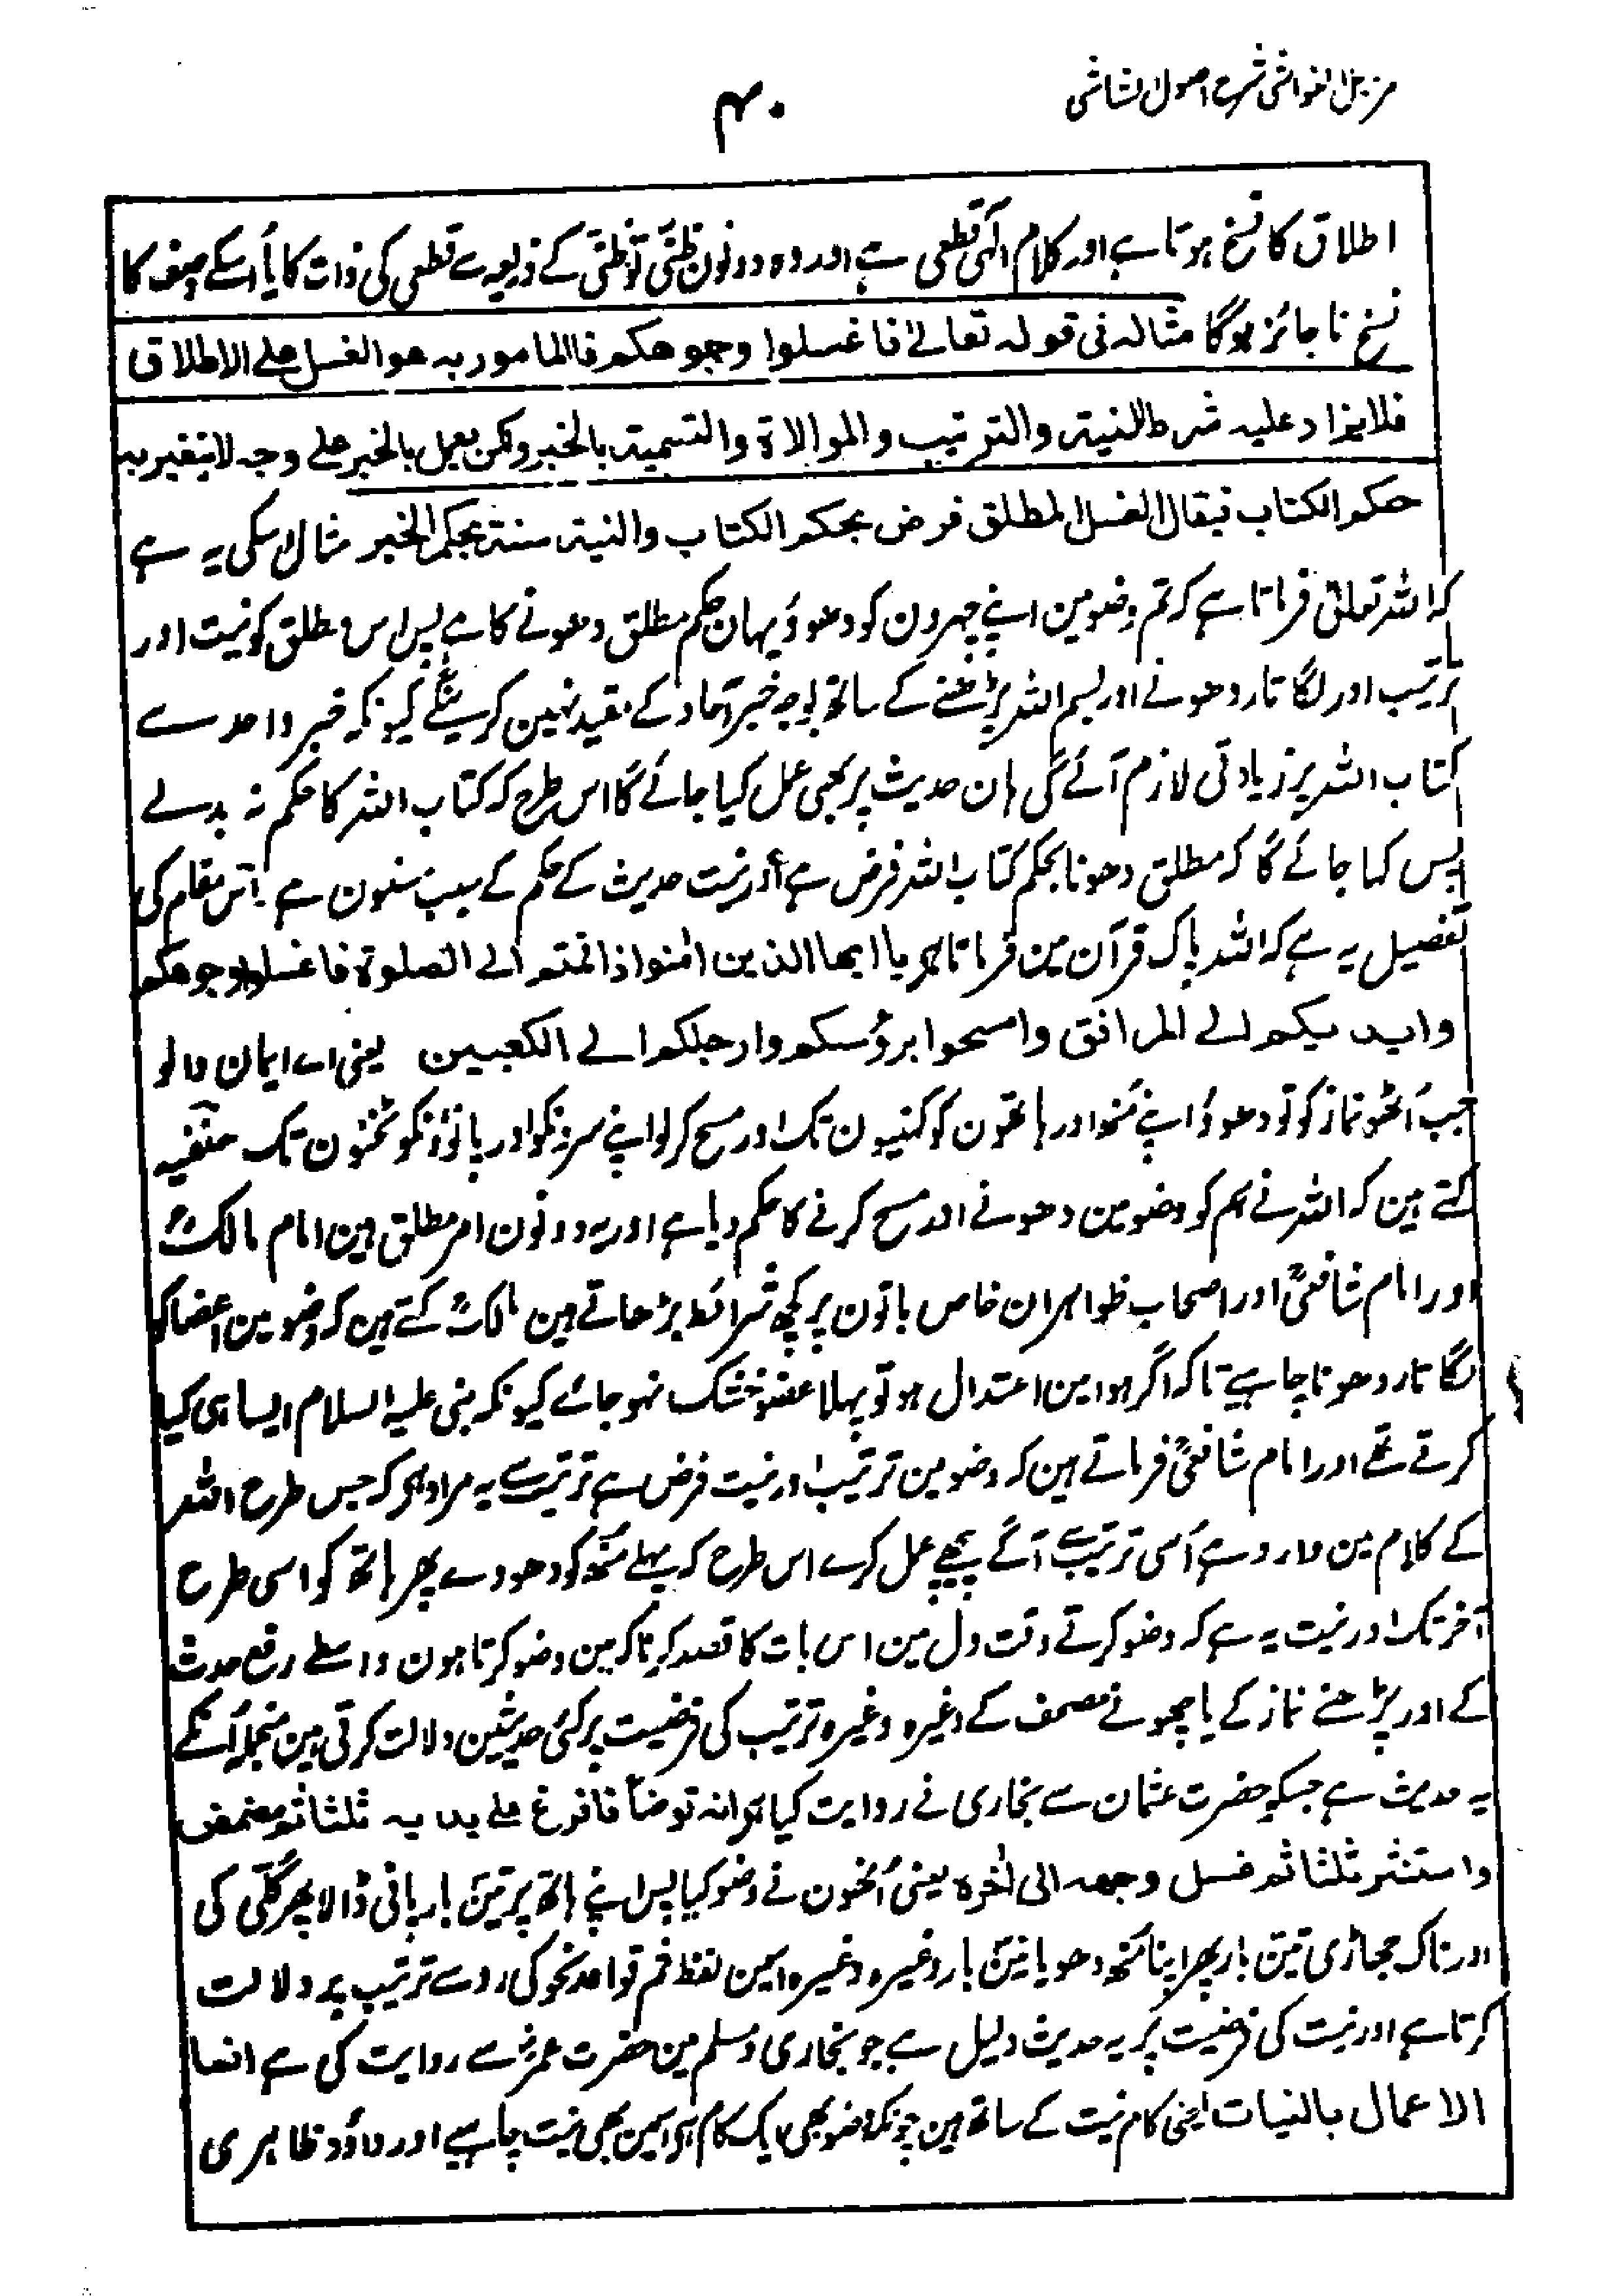 مزیل الغواشی شرح اصول الشاشی
۴۰
اطلاق کا نسخ ہوتا ہے اور کلام الٰہی قطعی ہے اور وہ دونون ظنّی تو ظنّی کے ذریعہ سے قطعی کی ذات کا یا اُسکے وصف کا
نسخ ناجائز ہوگا مثاله فی قوله تعالےٰ فاغسلوا وجوهکم فالمامور به هو الغسل علے الاطلاق
فلا یزاد علیه شرط النیة والترتیب والموالاة والتسمیة بالخبر ولکن یعمل بالخبر علے وجه لا یتغیر به
حکم الکتاب فیقال الغسل المطلق فرض بحکم الکتاب والنیة سنة بحکم الخبر مثال اسکی یہ ہے
کہ اللہ تعالیٰ فرماتا ہے کہ تم وضو مین اپنے چہرون کو دھوؤ یہان حکم مطلق دھونے کا ہے پس اس مطلق کو نیت اور
ترتیب اور لگاتار دھونے اور بسم اللہ پڑھنے کے ساتھ بوجہ خبر آحاد کے مقید نہین کرینگے کیونکہ خبر واحد سے
کتاب اللہ پر زیادتی لازم آئے گی ہان حدیث پر بھی عمل کیا جائے گا اس طرح کہ کتاب اللہ کا حکم نہ بدلے
پس کہا جائے گا کہ مطلق دھونا بحکم کتاب اللہ فرض ہے اور نیت حدیث کے حکم کے سبب مسنون ہے اس مقام کی
تفصیل یہ ہے کہ اللہ پاک قرآن مین فرماتا ہے یا ایھا الذین امنوا اذا قمتم الے الصلوة فاغسلوا وجوهکم
وایدیکم الے المرافق وامسحوا برؤسکم وارجلکم الے الکعبین یعنی اے ایمان والو
جب اُٹھو نماز کو تو دھوؤ اپنے مُنھ اور ہاتھون کو کہنیون تک اور مسح کرلو اپنے سرونکو اور پاؤنکو ٹخنون تک حنفیہ
کہتے ہین کہ اللہ نے ہم کو وضو مین دھونے اور مسح کرنے کا حکم دیا ہے اور یہ دونون امر مطلق ہین امام مالکؒ
اور امام شافعیؒ اور اصحاب ظواہر ان خاص باتون پر کچھ شرائط بڑھاتے ہین مالکؒ کہتے ہین کہ وضو مین اعضا کو
لگاتار دھونا چاہیے تاکہ اگر ہوا مین اعتدال ہو تو پہلا عضو خشک نہوجائے کیونکہ نبی علیہ السلام ایسا ہی کیا
کرتے تھے اور امام شافعیؒ فرماتے ہین کہ وضو مین ترتیب اور نیت فرض ہے ترتیب سے یہ مراد ہے کہ جس طرح اللہ
کے کلام مین وارد ہے اُسی ترتیب سے آگے پیچھے عمل کرے اس طرح کہ پہلے مُنھ کو دھووے پھر ہاتھ کو اسی طرح
آخر تک اور نیت یہ ہے کہ وضو کرتے وقت دل مین اس بات کا قصد کرنا کہ مین وضو کرتا ہون واسطے رفع حدث
کے اور پڑھنے نماز کے یا چھونے مصحف کے وغیرہ وغیرہ ترتیب کی فرضیت پر کئی حدیثین دلالت کرتی ہین منجملہ اُنکے
یہ حدیث ہے جسکو حضرت عثمان سے بخاری نے روایت کیا ہے انه توضأ فافرغ علے یدیه ثلثا ثم مضمض
واستنثر ثلثا ثم غسل وجهه الی اٰخره یعنی اُنھون نے وضو کیا پس اپنے ہاتھ پر تین بار پانی ڈالا پھر کُلّی کی
اور ناک جھاڑی تین بار پھر اپنا مُنھ دھویا تین بار وغیرہ وغیرہ اسمین لفظ ثم قواعد نحو کی رو سے ترتیب پر دلالت
کرتا ہے اور نیت کی فرضیت پر یہ حدیث دلیل ہے جو بخاری و مسلم مین حضرت عمرؓ سے روایت کی ہے انما
الاعمال بالنیات یعنی کام نیت کے ساتھ ہین چونکہ وضو بھی ایک کام ہے اسمین بھی نیت چاہیے اور داؤد ظاہری